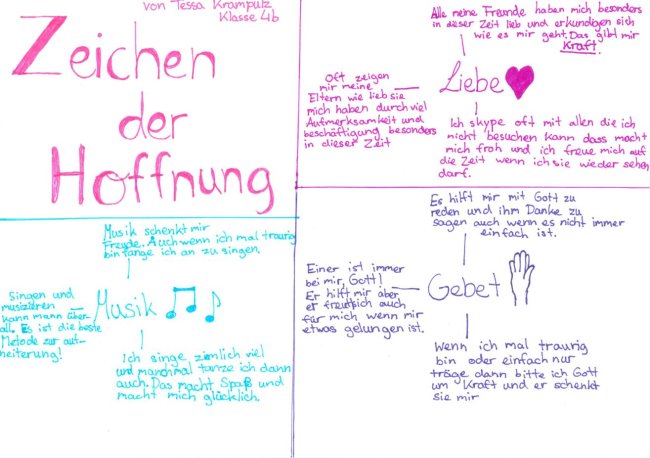 von Tessa Krampulz
Klasse 4b
Zeichen
der
Hoffnung
Alle meine Freunde haben mich besonders
in dieser Zeit lieb und erkundigen sich
wie es mir geht. Das gibt mir
Kraft!
Liebe
Oft zeigen
mir meine
Eltern wie lieb sie
mich haben durch viel
Aufmerksamkeit und
beschäftigung besonders
in dieser Zeit
Ich skype oft mit allen die ich
nicht besuchen kann dass macht
mich froh und ich freue mich auf
die Zeit wenn ich sie wieder sehen
darf.
Musik schenkt mir
Freude. Auch wenn ich mal traurig
bin fange ich an zu singen.
Musik
Singen und
musizieren
kann mann über-
all. Es ist die beste
Metode zur auf-
heiterung!
Ich singe zimlich viel
und manchmal tanze ich dann
auch. Das macht Spaß und
macht mich glücklich.
Es hilft mir mit Gott zu
reden und ihm Danke zu
sagen auch wenn es nicht immer
einfach ist.
Gebet
Einer ist immer
bei mir, Gott!
Er hilft mir aber
er freut sich auch
für mich wenn mir
etwas gelungen ist.
Wenn ich mal traurig
bin oder einfach nur
träge dann bitte ich Gott
um Kraft und er schenkt
sie mir